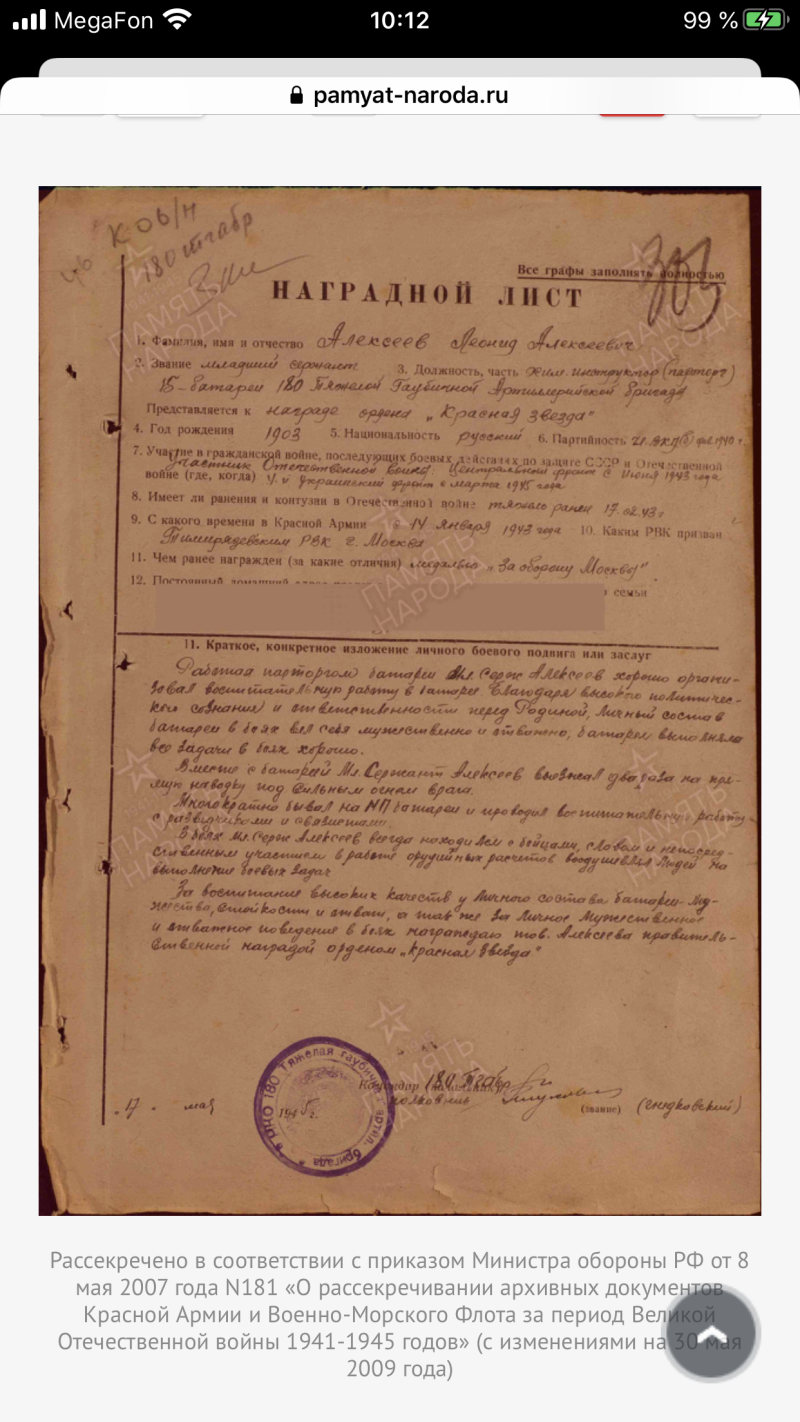 MegaFon 10:12 99 %
pamyat-naroda.ru
К ОБ/Н
180 тгабр
303
Все графы заполнять полностью
НАГРАДНОЙ ЛИСТ
1. Фамилия, имя и отчество Алексеев Леонид Алексеевич
2. Звание младший сержант 3. Должность, часть хим. инструктор (парторг)
15-батареи 180 Тяжелой Гаубичной Артиллерийской бригады
Представляется к награде ордена „Красная Звезда"
4. Год рождения 1903 5. Национальность русский 6. Партийность чл. ВКП(б) 1940 г.
7. Участие в гражданской войне, последующих боевых действиях по защите СССР и Отечественной
Участник Отечественной войны: Центральный фронт с Июня 1943 года
войне (где, когда) 1/й Украинский фронт с марта 1945 года
8. Имеет ли ранения и контузии в Отечественной войне тяжело ранен 17.02.43 г.
9. С какого времени в Красной Армии с 14 января 1943 года 10. Каким РВК призван
Тимирязевским РВК г. Москва
11. Чем ранее награжден (за какие отличия) медалью „За оборону Москвы"
12. Постоянный домашний адрес семьи
11. Краткое, конкретное изложение личного боевого подвига или заслуг
Работая парторгом батареи Мл. Серж Алексеев хорошо органи-
зовал воспитательную работу в батарее Благодаря высокого политичес-
кого сознания и ответственности перед Родиной, личный состав
батареи в боях вел себя мужественно и отважно, батарея выполняла
все задачи в боях хорошо.
Вместе с батареей Мл. Сержант Алексеев выезжал два раза на пря-
мую наводку под сильным огнем врага.
Многократно бывал на НП батареи и проводил воспитательную работу
с разведчиками и связистами.
В боях Мл. Серж Алексеев всегда находился с бойцами, словом и непосред-
ственным участием в работе орудийных расчетов воодушевлял людей на
выполнение боевых задач
За воспитание высоких качеств у личного состава батареи-му-
жества, стойкости и отваги, а так же за личное мужественное
и отважное поведение в боях награждаю тов. Алексеева правитель-
ственной наградой орденом „Красная Звезда"
Командир 180 тгабр
полковник
„17" мая 194 г. (звание)
НКО 180 Тяжелая гаубичн артил. бригада
ПАМЯТЬ НАРОДА
Рассекречено в соответствии с приказом Министра обороны РФ от 8
мая 2007 года N181 «О рассекречивании архивных документов
Красной Армии и Военно-Морского Флота за период Великой
Отечественной войны 1941-1945 годов» (с изменениями на 30 мая
2009 года)